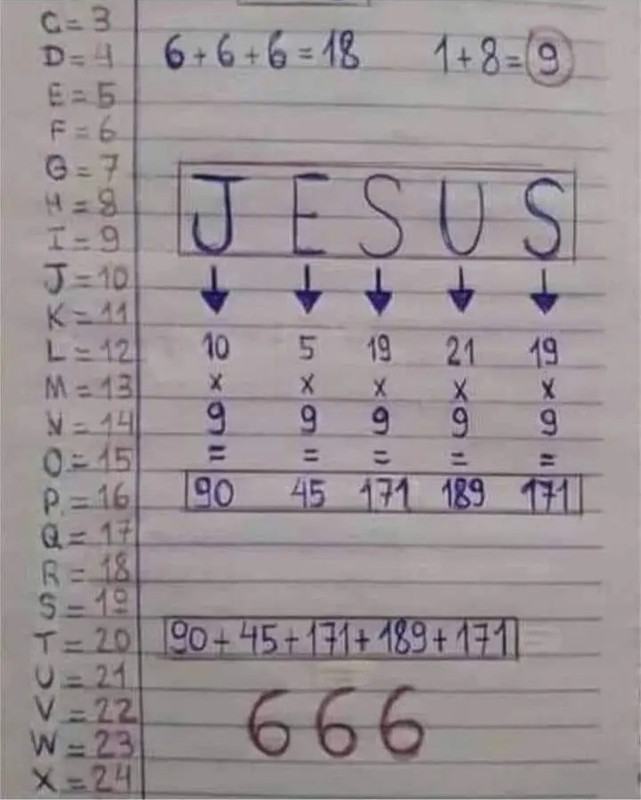 C = 3
D = 4
E = 5
F = 6
G = 7
H = 8
I = 9
J = 10
K = 11
L = 12
M = 13
N = 14
O = 15
P = 16
Q = 17
R = 18
S = 19
T = 20
U = 21
V = 22
W = 23
X = 24
6 + 6 + 6 = 18 1 + 8 = 9
J E S U S
10 5 19 21 19
x x x x x
9 9 9 9 9
= = = = =
90 45 171 189 171
90 + 45 + 171 + 189 + 171
666